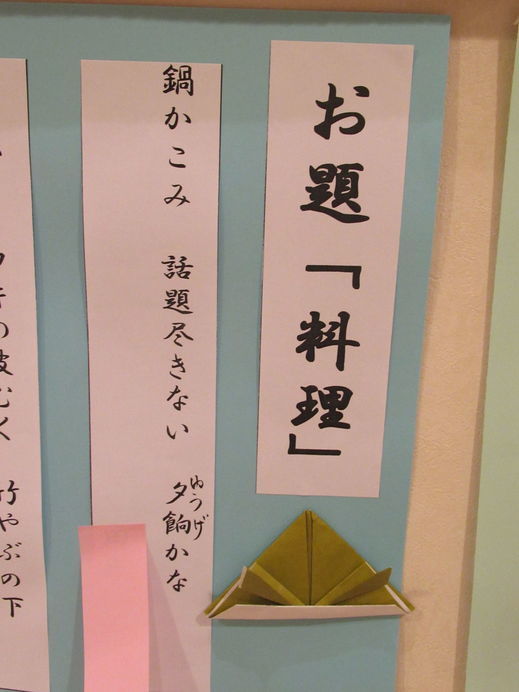 お題「料理」
鍋かこみ 話題尽きない 夕餉かな
ゆうげ
の皮むく 竹やぶの下